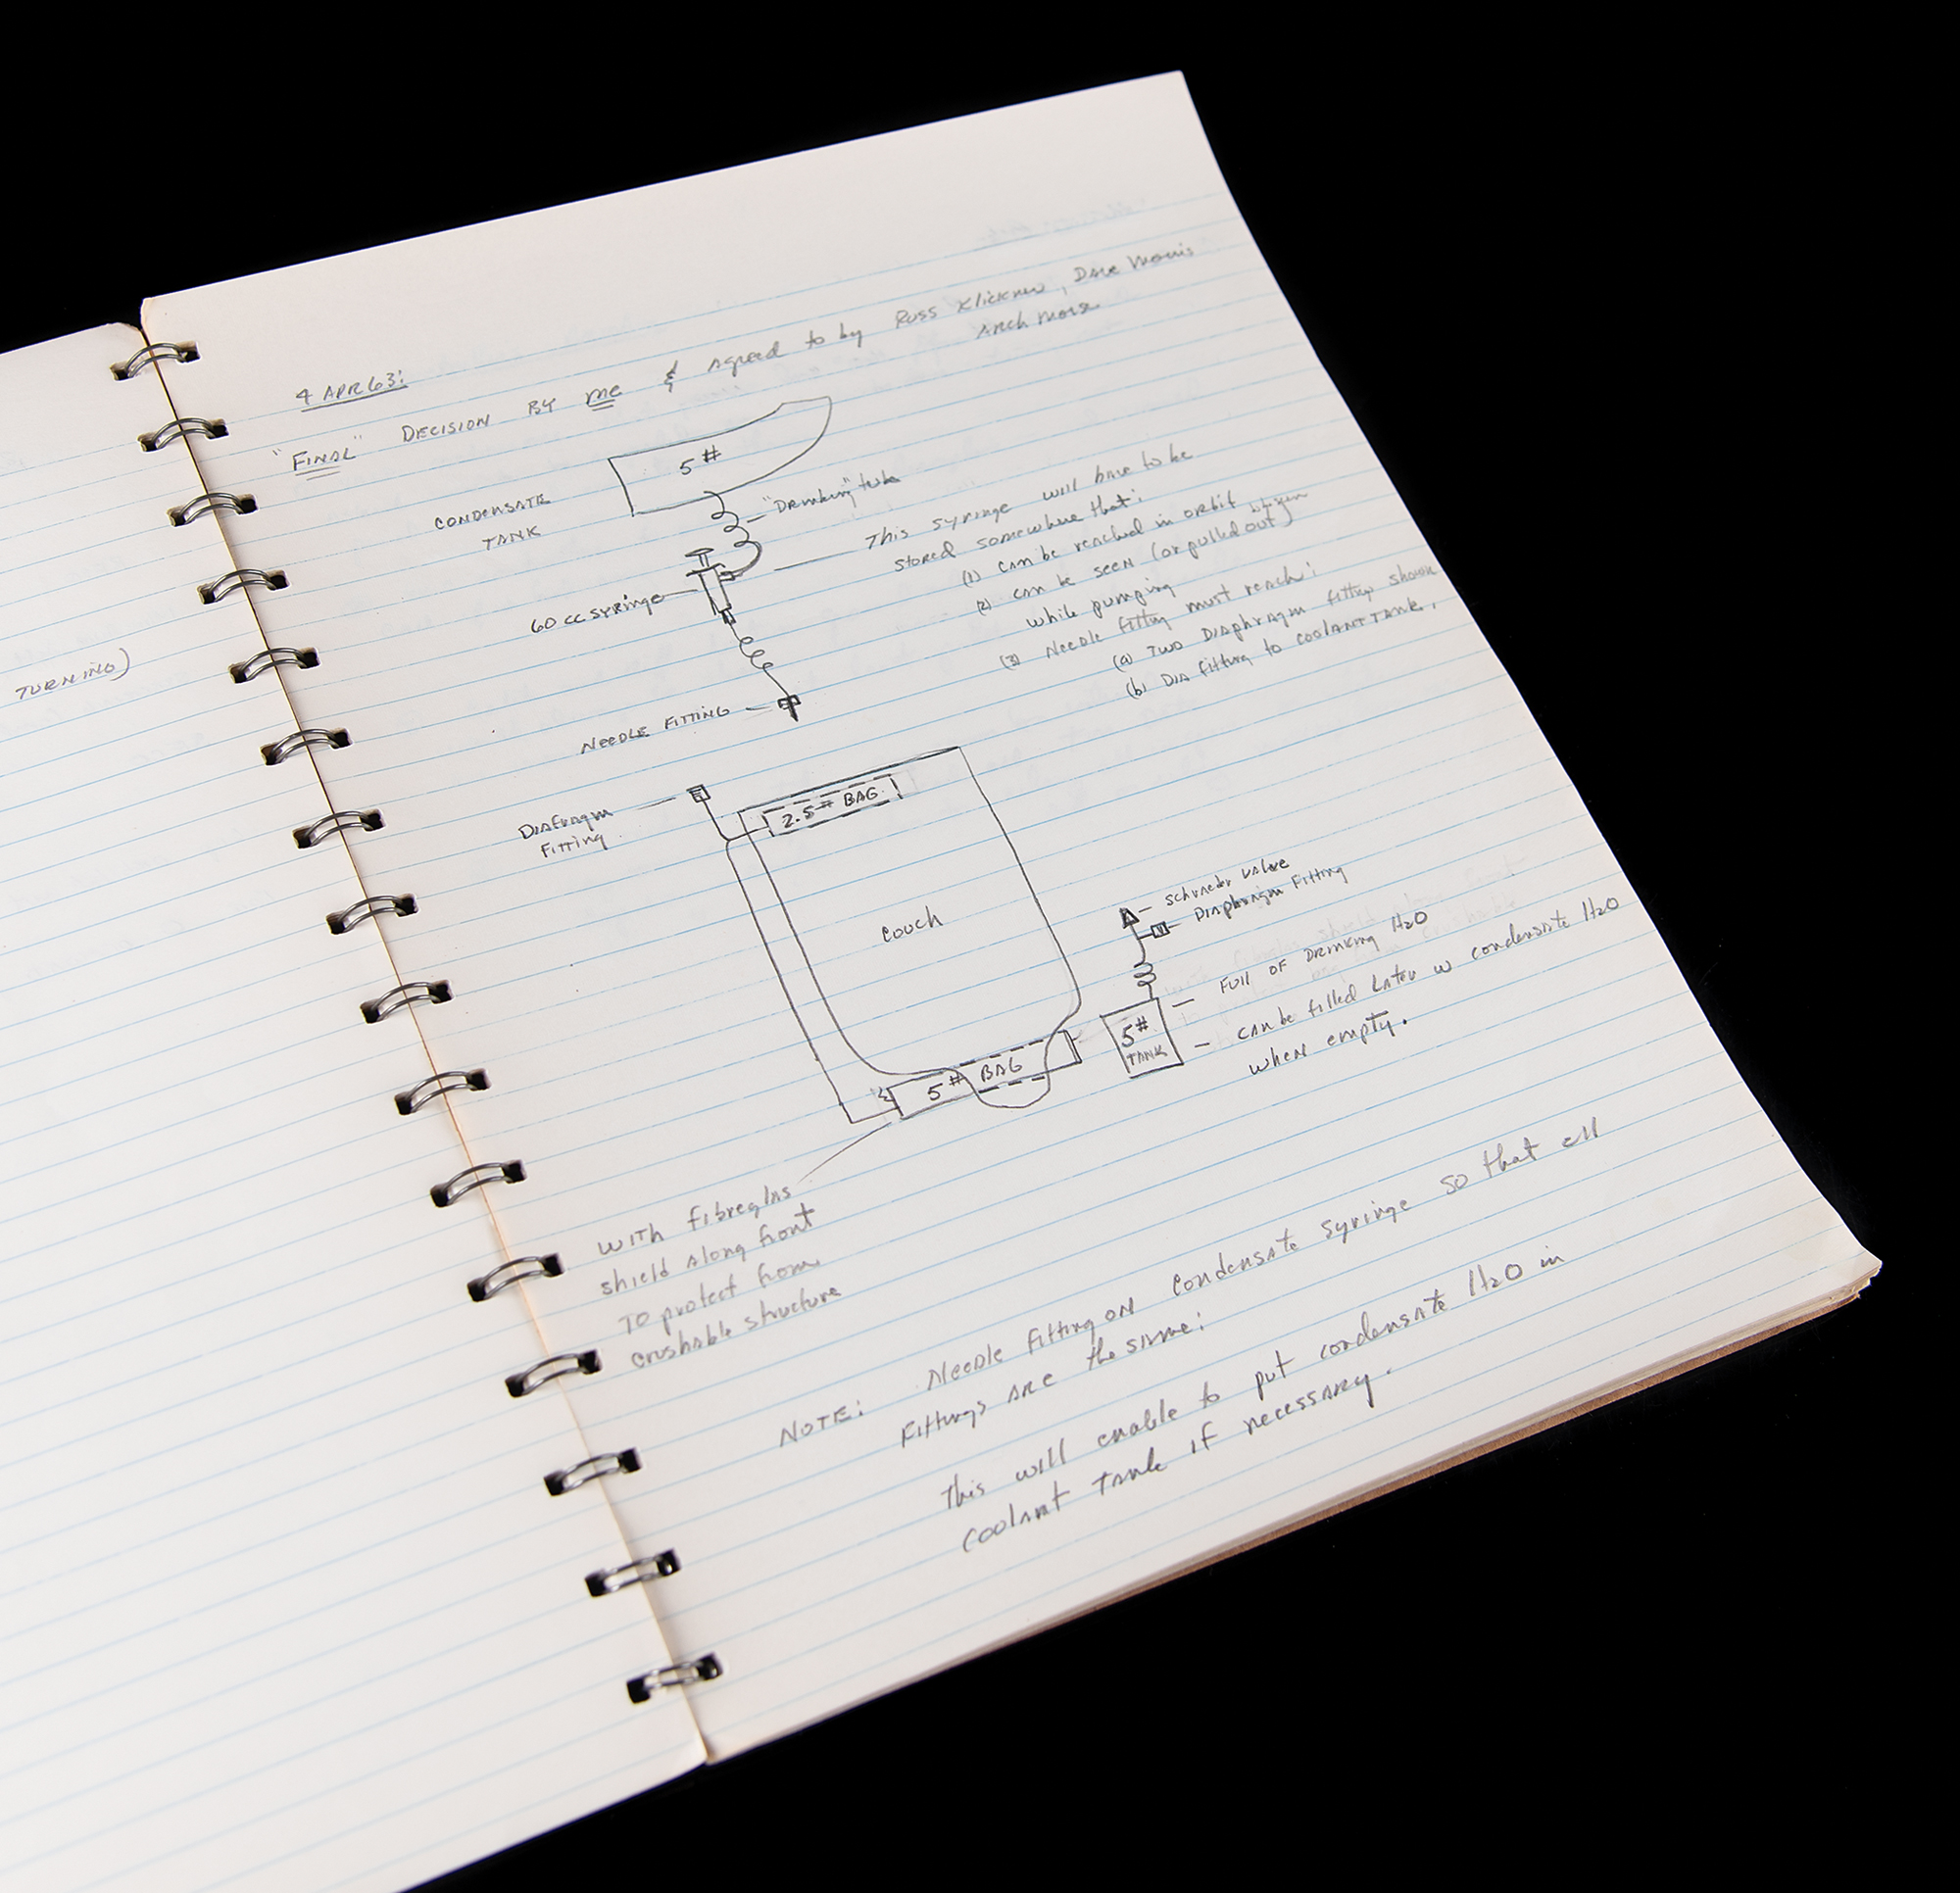 TURNING)
4 APR 63:
"FINAL" DECISION BY me & Agreed to by Russ Klickner, Dave Morris
Arch
CONDENSATE
TANK
5#
"Drinking" tube
60 CC SYRINGE
NEEDLE FITTING
This syringe will have to be
stored somewhere that:
(1) can be reached in orbit
(2) can be seen (or pulled out)
while pumping
(3) Needle fitting must reach:
(a) TWO DIAphragm fittings shown
(b) DIA fitting to COOLANT TANK.
DIAfragm
Fitting
2.5# BAG
couch
5# BAG
schrader valve
Diaphragm Fitting
5#
TANK
- Full OF DRINKING H2O
- can be filled Later w condensate H2O
when empty.
WITH fibreglas
shield along front
TO protect from
crushable structure
NOTE: Needle fitting ON condensate syringe so that all
fittings ARE the same:
This will enable to put condensate H2O in
coolant tank if necessary.